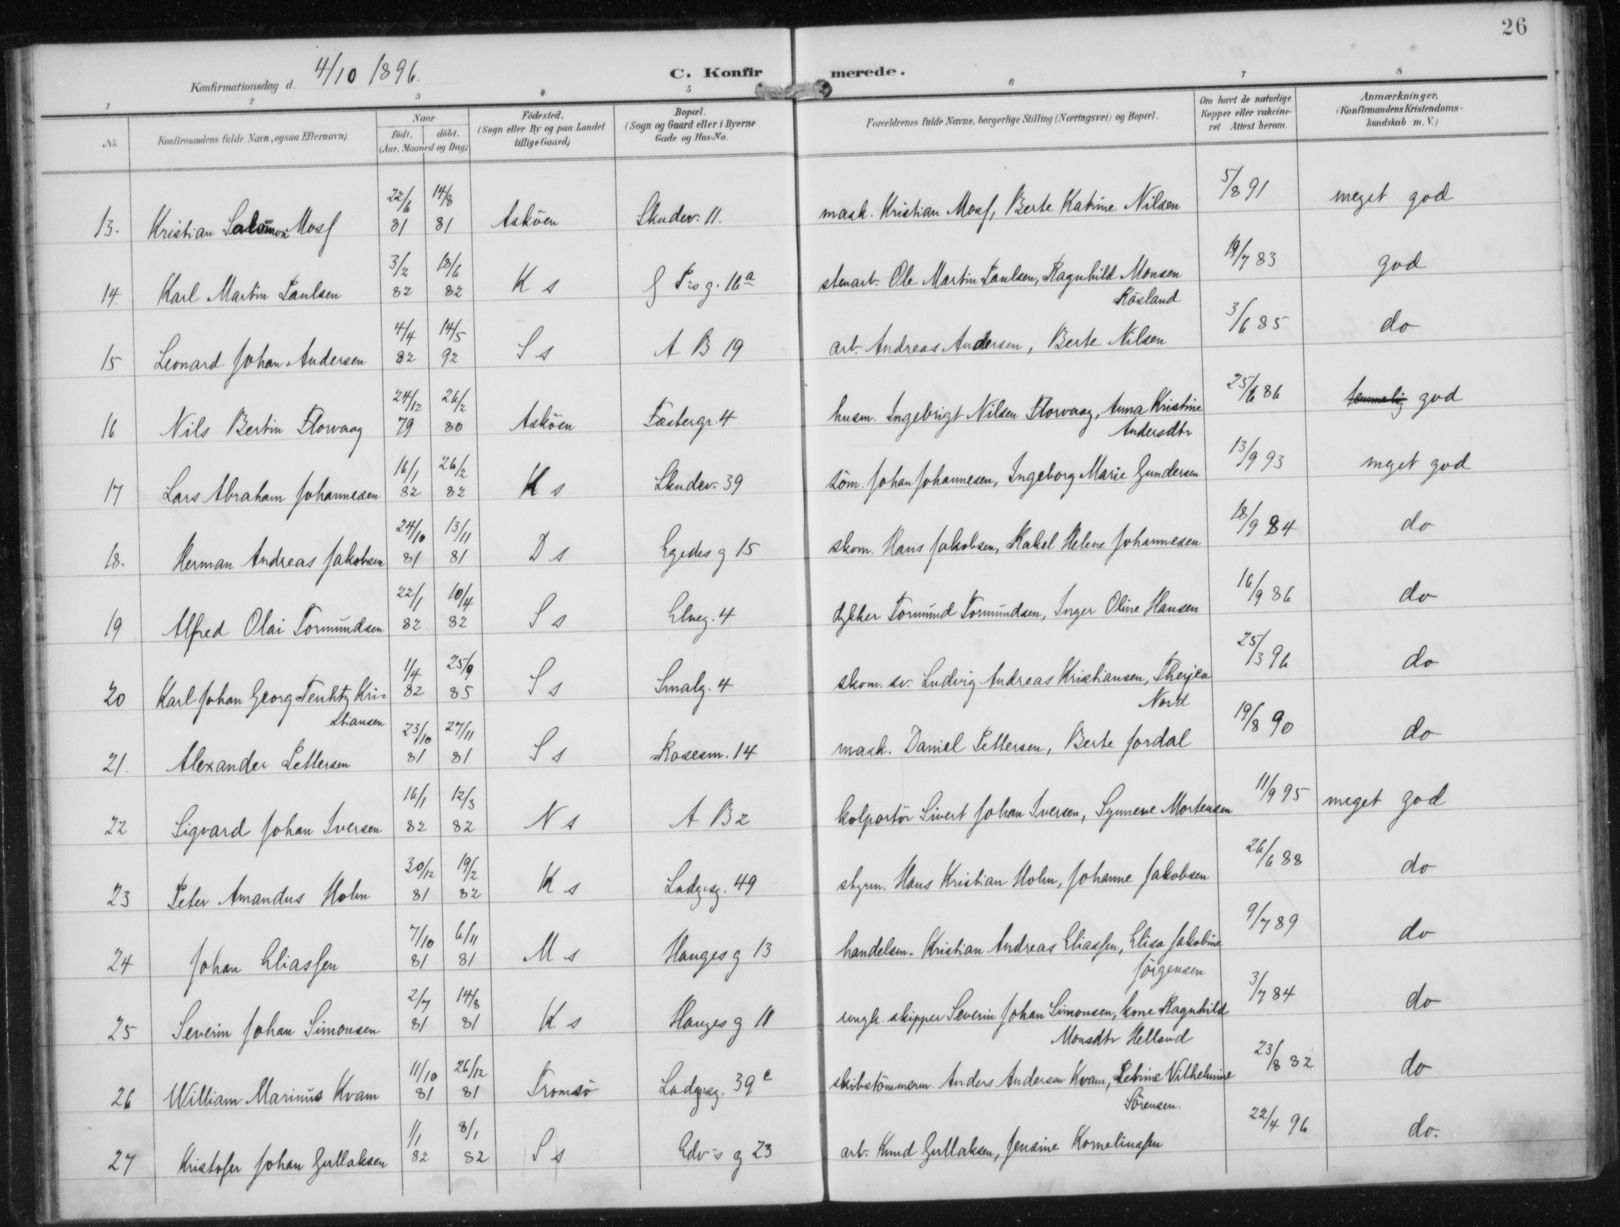 26
Konfirmationsdag d. 4/10 1896.
C. Konfirmerede.
1 2 3 4 5 6 7 8
No. Konfirmandens fulde Navn, ogsaa Efternavn) Naar Födt. döbt. (Aar, Maaned og Dag) Födested. (Sogn eller By og paa Landet tillige Gaard) Bopæl. (Sogn og Gaard eller i Byerne Gade og Hus-No. Forældrenes fulde Navne, borgerlige Stilling (Næringsvei) og Bopæl. Om havt de naturlige Kopper eller vakcineret Attest herom. Anmærkninger, (Konfirmandens Kristendomskundskab m. V.)
13. Kristian Salomon Mosf 22/6 81 14/8 81 Asköen Skudev. 11. mask. Kristian Mosf, Berte Katrine Nilsen 5/8 91 meget god
14 Karl Martin Paulsen 3/2 82 18/6 82 K s 16a stenarb. Ole Martin Paulsen, Ragnhild Monsen Røsland 19/7 83 god
15 Leonard Johan Andersen 4/4 82 14/5 92 S s A B 19 arb. Andreas Andersen, Berte Nilsen 3/6 85 do
16 Nils Bertin Florvaag 24/12 79 26/2 80 Asköen Fæstergr. 4 husm. Ingebrigt Nilsen Florvaag, Anna Kristine Andersdtr 25/6 86 temmelig god
17 Lars Abraham Johannesen 16/1 82 26/2 82 K s Skudev. 39 söm. Johan Johannesen, Ingeborg Marie Gundersen 13/9 93 meget god
18. Herman Andreas Jakobsen 24/10 81 13/11 81 D s Egedes g 15 skom. Hans Jakobsen, Rakel Helene Johannesen 18/9 84 do
19 Alfred Olai Tormundsen 22/1 82 10/4 82 S s Elveg. 4 dykker Tormund Tormundsen, Inger Oline Hansen 16/9 86 do
20 Karl Johan Georg Kristiansen 1/4 82 25/9 85 S s Smalg. 4 skom. sv. Ludvig Andreas Kristiansen, Nord 25/3 96 do
21. Alexander Pettersen 23/10 81 27/11 81 S s Rosesm. 14 mask. Daniel Pettersen, Berte Jordal 19/8 90 do
22 Sigvard Johan Iversen 16/1 82 12/3 82 N s A B 2 kolportör Sivert Johan Iversen, Synneve Mortensen 11/9 95 meget god
23 Peter Amandus Holm 30/12 81 19/2 82 K s Ladegsg. 49 styrm. Hans Kristian Holm, Johanne Jakobsen 26/6 88 do
24 Johan Eliassen 7/10 81 6/11 81 M s Hauges g 13 handelsm. Kristian Andreas Eliassen, Elisa Jakobine Jörgensen 9/7 89 do
25 Severin Johan Simonsen 2/7 81 14/8 81 K s Hauges g 11 ungk. skipper Severin Johan Simonsen, kone Ragnhild Monsdtr Helland 3/7 84 do
26 William Marinus Kvam 11/10 81 26/12 81 Tromsö Ladegsg. 39c skibstömmerm. Anders Andersen Kvam, Petrine Vilhelmine Sörensen. 23/8 82 do
27 Kristofer Johan Gullaksen 1/1 82 8/1 82 S s Edv's g 23 arb. Knud Gullaksen, Jensine Kornelinssen 22/4 96 do.